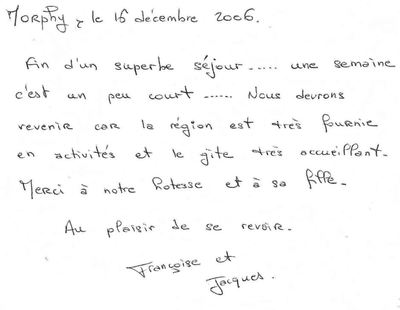 Morphy, le 16 décembre 2006.
Fin d'un superbe séjour..... une semaine
c'est un peu court ...... Nous devrons
revenir car la région est très fournie
en activités et le gîte très accueillant.
Merci à notre hotesse et à sa fille.
Au plaisir de se revoir.
Françoise et
Jacques.